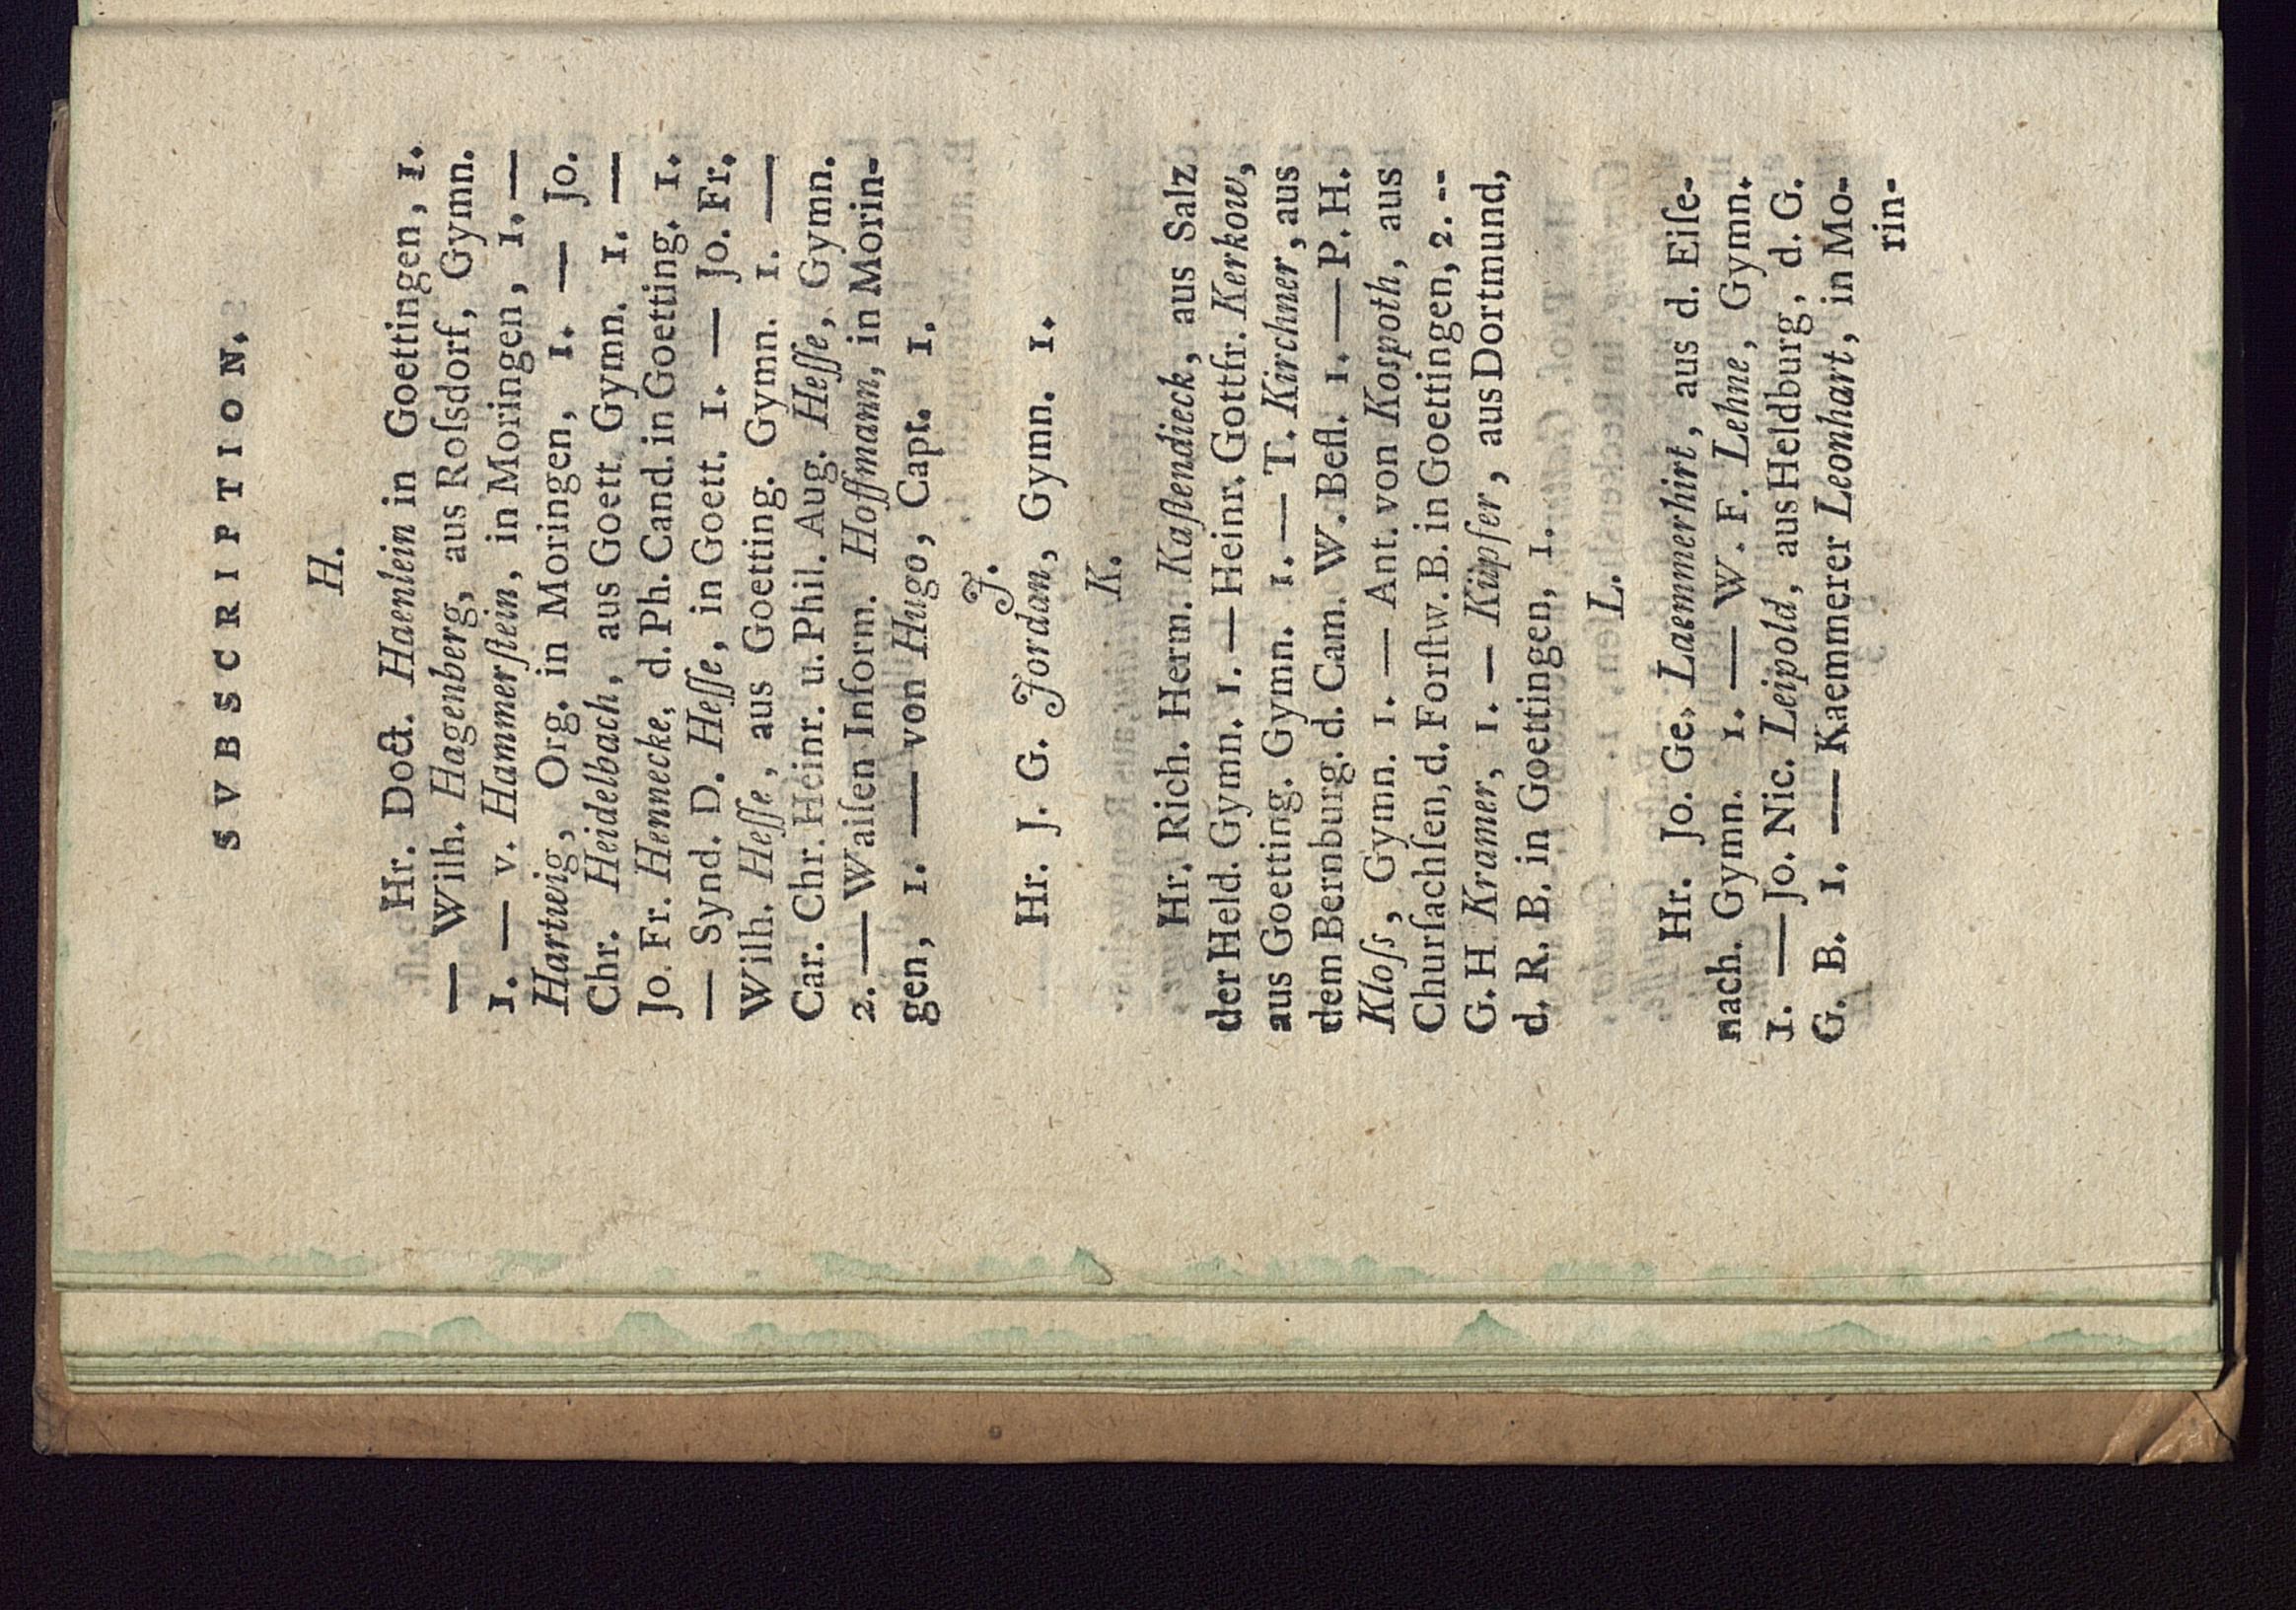 SVBSCRIPTION.
H.
Hr. Doct. Haenlein in Goettingen, 1.
— Wilh. Hagenberg, aus Roſsdorf, Gymn.
1. — v. Hammerſtein, in Moringen, 1. —
Hartwig, Org. in Moringen, 1. — Jo.
Chr. Heidelbach, aus Goett. Gymn. 1. —
Jo. Fr. Hennecke, d. Ph. Cand. in Goetting. 1.
— Synd. D. Heſſe, in Goett. 1. — Jo. Fr.
Wilh. Heſſe, aus Goetting. Gymn. 1. —
Car. Chr. Heinr. u. Phil. Aug. Heſſe, Gymn.
2. — Waiſen Inform. Hoffmann, in Morin-
gen, 1. — von Hugo, Capt. 1.
J.
Hr. J. G. Jordan, Gymn. 1.
K.
Hr. Rich. Herm. Kaſtendieck, aus Salz
der Held. Gymn. 1. — Heinr. Gottfr. Kerkow,
aus Goetting. Gymn. 1. — T. Kirchner, aus
dem Bernburg. d. Cam. W. Befl. 1. — P. H.
Kloſs, Gymn. 1. — Ant. von Kospoth, aus
Churſachſen, d. Forſtw. B. in Goettingen, 2. --
G. H Kramer, 1. — Küpſer, aus Dortmund,
d. R. B. in Goettingen, 1.
L.
Hr. Jo. Ge. Laemmerhirt, aus d. Eiſe-
nach. Gymn. 1. — W. F. Lehne, Gymn.
1. — Jo. Nic. Leipold, aus Heldburg, d. G.
G. B. 1. — Kaemmerer Leonhart, in Mo-
rin-